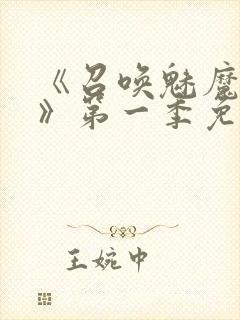 《召唤魅魔
》第一季免
王婉中